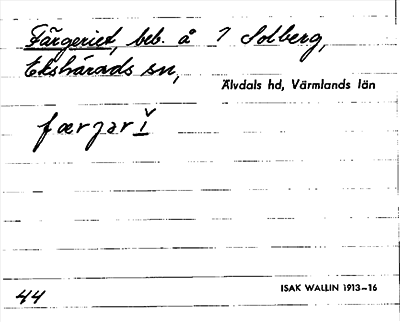 Färgeriet, beb. å 1 Solberg,
Ekshärads sn,
Älvdals hd, Värmlands län
færgarĭ
44
ISAK WALLIN 1913–16